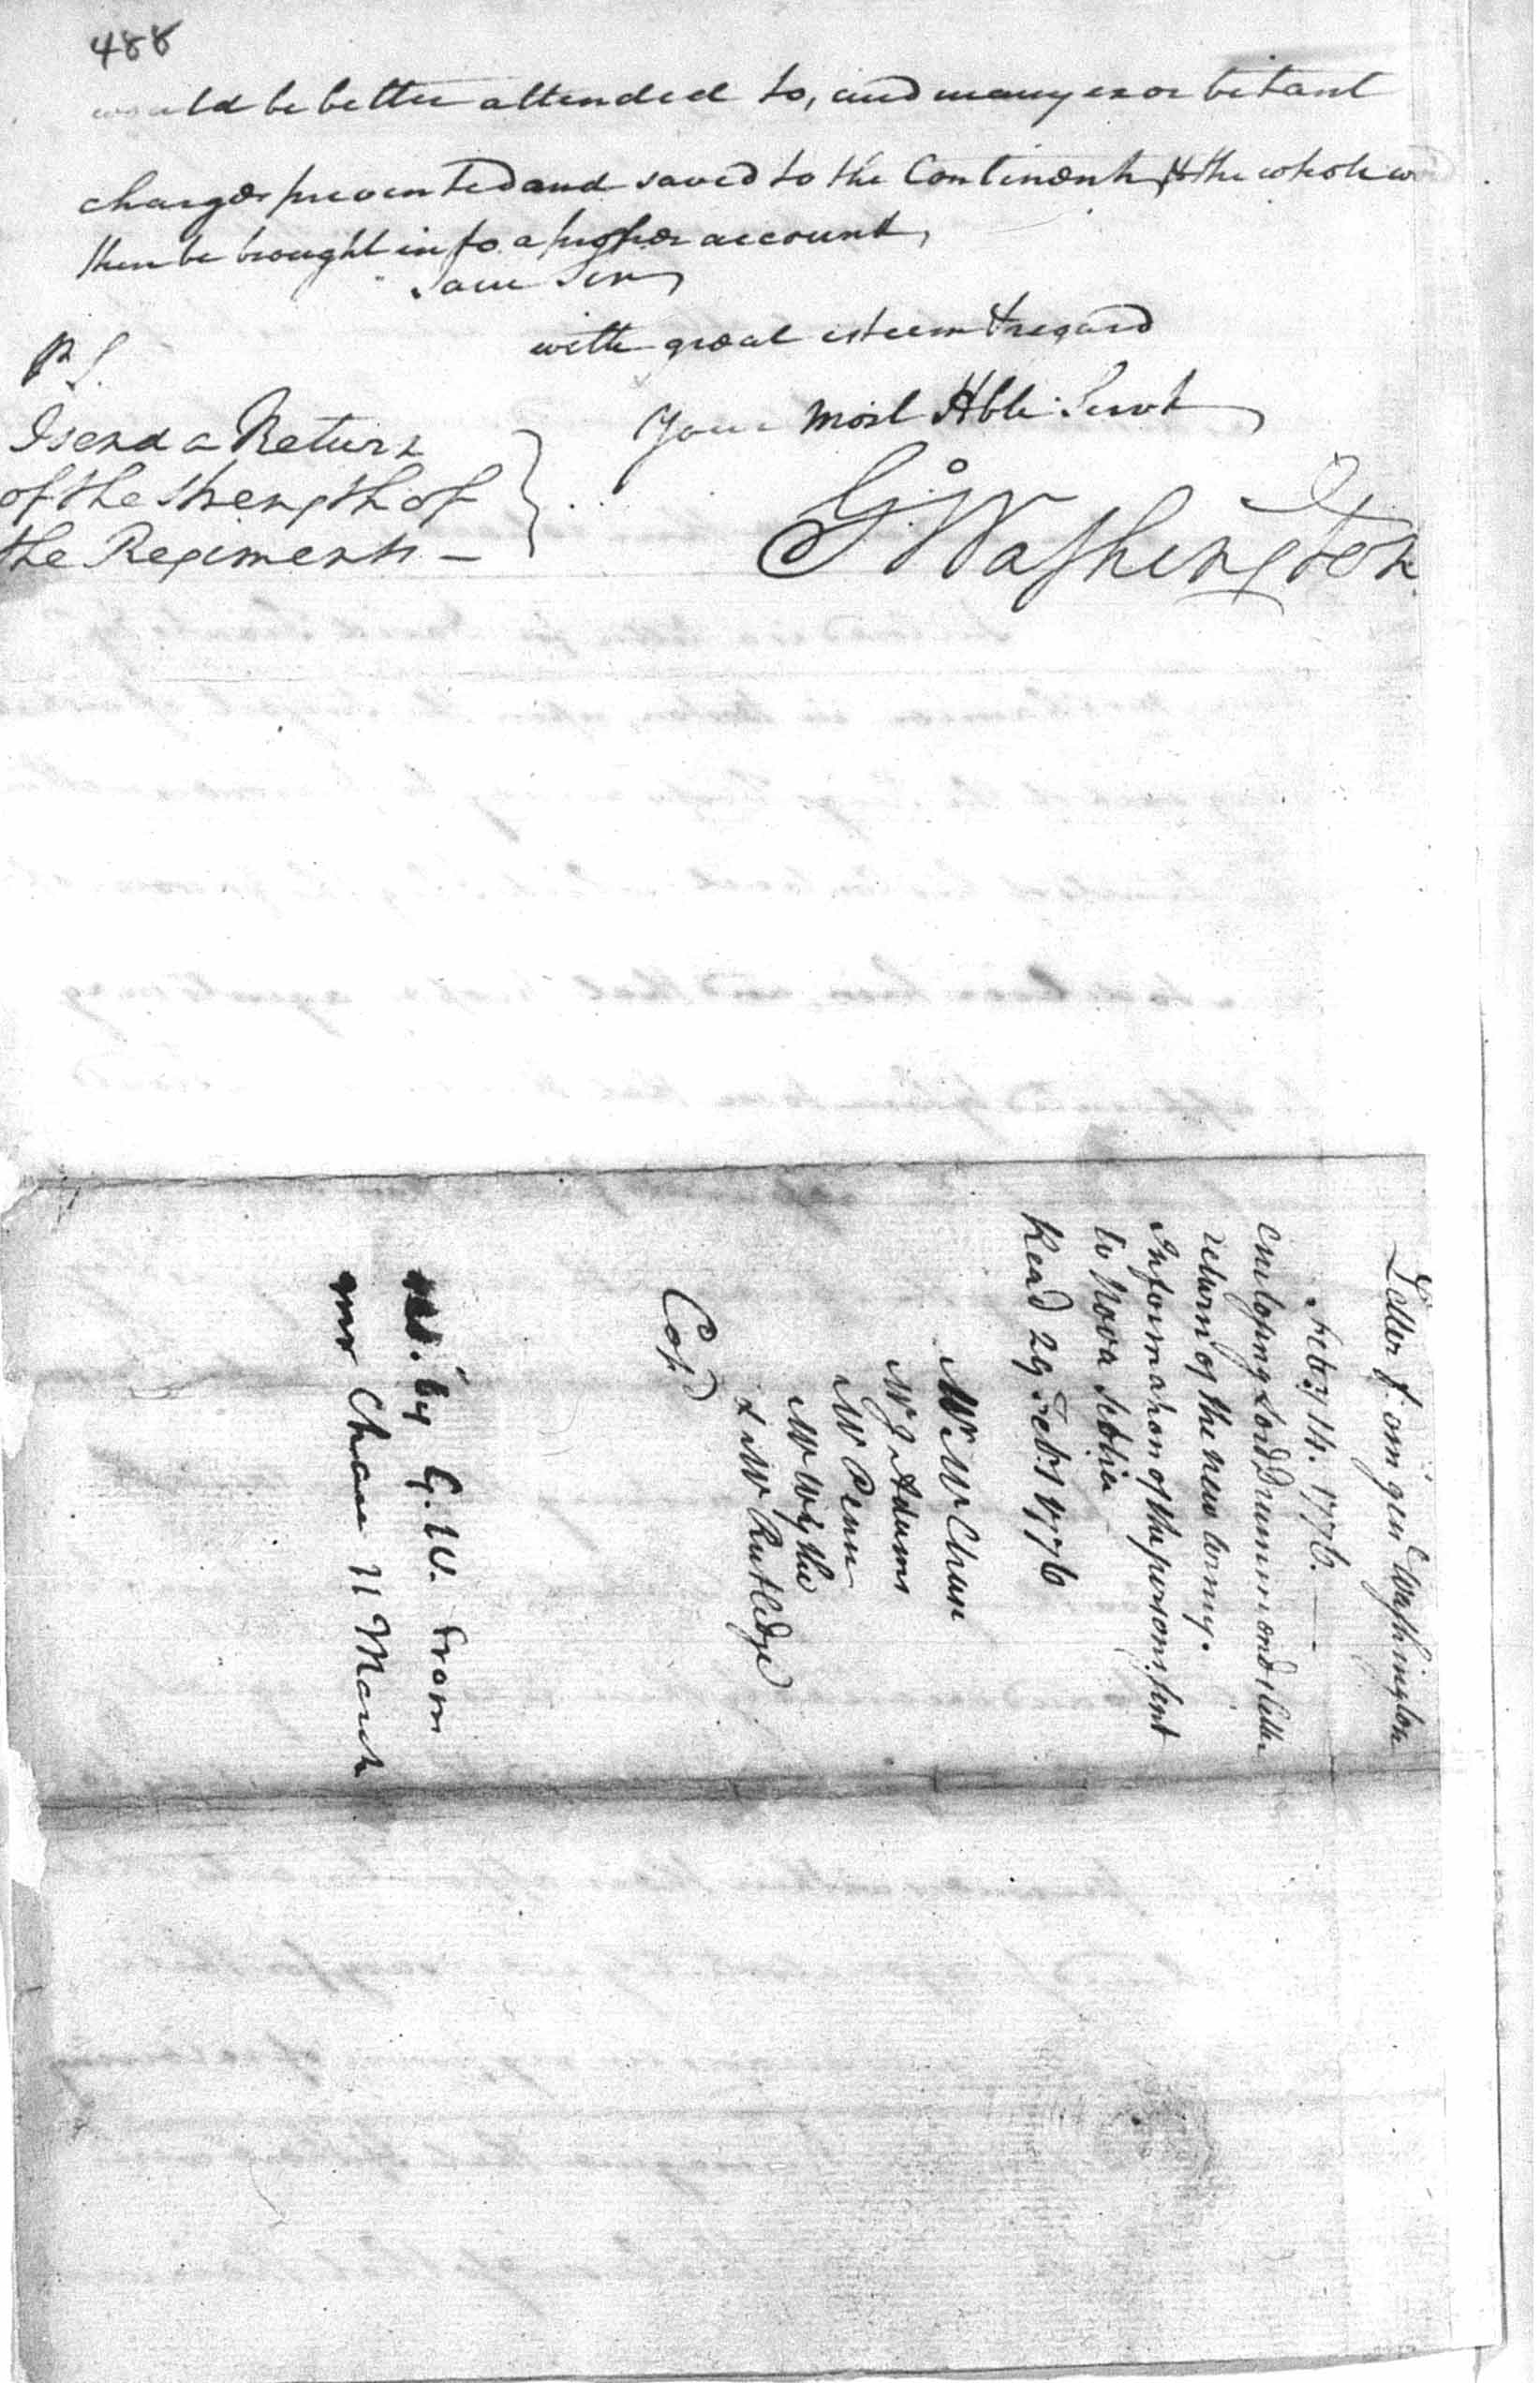 488
would be better attended to, and many exorbitant
charges prevented and saved to the Continent, & the whole
then be brought into a proper account,
I am Sir,
with great esteem & regard
Your Most Hble Servt
Go Washington
P.S.
I send a Return
of the Strength of
the Regiments —
Letter from gen Washington
Feby 14. 1776. —
enclosing Lord Drummonds letter
return of the new army.
Information of the persons sent
to Nova Scotia
Read 29 Feby 1776
Mr Chase
Mr J Adams
Mr Penn
Mr Wythe
& Mr Rutledge
Cop.d
by G. W. from
Mr Chase 11 March